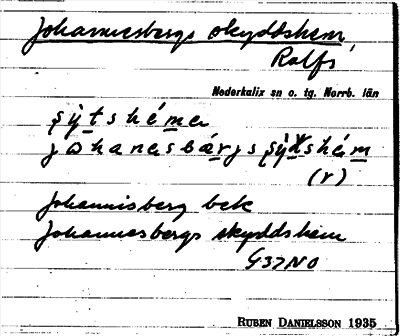 Johannesbergs skyddshem,
Rolfs,
Nederkalix sn o. tg. Norrb. län
ʂy̌tshéma
johanasbárjs ʂy̌tshém
(r)
Johannisberg bek
Johannesbergs skyddshem
G37NO
RUBEN DANIELSSON 1935